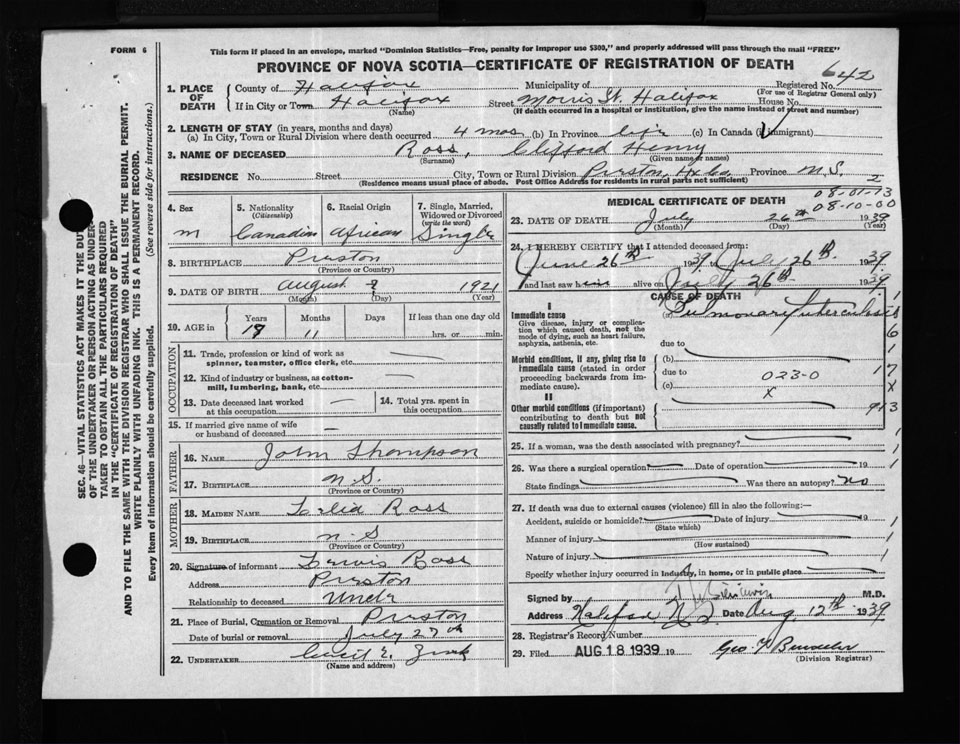 FORM 6
This form if placed in an envelope, marked "Dominion Statistics—Free, penalty for improper use $300," and properly addressed will pass through the mail "FREE"
PROVINCE OF NOVA SCOTIA—CERTIFICATE OF REGISTRATION OF DEATH
642
1. PLACE OF DEATH
County of Halifax Municipality of Registered No.
(For use of Registrar General only)
If in City or Town Halifax Street Morris St. Halifax House No.
(Name) (If death occurred in a hospital or institution, give the name instead of street and number)
2. LENGTH OF STAY (in years, months and days)
(a) In City, Town or Rural Division where death occurred 4 mos (b) In Province life (c) In Canada (if immigrant)
3. NAME OF DECEASED Ross, Clifford Henry
(Surname) (Given name or names)
RESIDENCE No. Street City, Town or Rural Division Preston, Hx Co, Province N.S.
(Residence means usual place of abode. Post Office Address for residents in rural parts not sufficient)
2
08-01-13
08-10-00
4. Sex
M
5. Nationality (Citizenship)
Canadian
6. Racial Origin
African
7. Single, Married, Widowed or Divorced (write the word)
Single
8. BIRTHPLACE Preston
(Province or Country)
9. DATE OF BIRTH August 1921
(Month) (Day) (Year)
10. AGE in Years Months Days If less than one day old
11 hrs. or min.
OCCUPATION
11. Trade, profession or kind of work as spinner, teamster, office clerk, etc. —
12. Kind of industry or business, as cotton-mill, lumbering, bank, etc. —
13. Date deceased last worked at this occupation —
14. Total yrs. spent in this occupation
15. If married give name of wife or husband of deceased —
FATHER
16. NAME John Thompson
17. BIRTHPLACE N.S.
(Province or Country)
MOTHER
18. MAIDEN NAME Ross
19. BIRTHPLACE N.S
(Province or Country)
20. Signature of informant Lewis Ross
Address Preston
Relationship to deceased Uncle
21. Place of Burial, Cremation or Removal Preston
Date of burial or removal July 27th
22. UNDERTAKER Cecil E. Zink
(Name and address)
MEDICAL CERTIFICATE OF DEATH
23. DATE OF DEATH July 26th 1939
(Month) (Day) (Year)
24. I HEREBY CERTIFY that I attended deceased from:
June 26th 1939, to July 26th 1939
and last saw him alive on July 26th 1939
CAUSE OF DEATH
Immediate cause
Give disease, injury or complication which caused death, not the mode of dying, such as heart failure, asphyxia, asthenia, etc.
(a) Pulmonary Tuberculosis
due to
Morbid conditions, if any, giving rise to immediate cause (stated in order proceeding backwards from immediate cause).
(b)
due to
023-0
(c)
X
Other morbid conditions (if important) contributing to death but not causally related to immediate cause.
1
6
1
17
X
913
25. If a woman, was the death associated with pregnancy? 1
26. Was there a surgical operation Date of operation 19 1
State findings Was there an autopsy? No
27. If death was due to external causes (violence) fill in also the following:—
Accident, suicide or homicide? Date of injury 19 1
(State which)
Manner of injury 1
(How sustained)
Nature of injury 1
Specify whether injury occurred in Industry, in home, or in public place
Signed by M.D.
Address Halifax N.S. Date Aug 12th 1939
28. Registrar's Record Number
29. Filed AUG 18 1939 19
Geo.
(Division Registrar)
SEC. 46—VITAL STATISTICS ACT MAKES IT THE DUTY
OF THE UNDERTAKER OR PERSON ACTING AS UNDER-
TAKER TO OBTAIN ALL THE PARTICULARS REQUIRED
IN THE "CERTIFICATE OF REGISTRATION OF DEATH"
AND TO FILE THE SAME WITH THE DIVISION REGISTRAR WHO SHALL ISSUE THE BURIAL PERMIT.
WRITE PLAINLY WITH UNFADING INK. THIS IS A PERMANENT RECORD.
Every item of information should be carefully supplied. (See reverse side for instructions.)